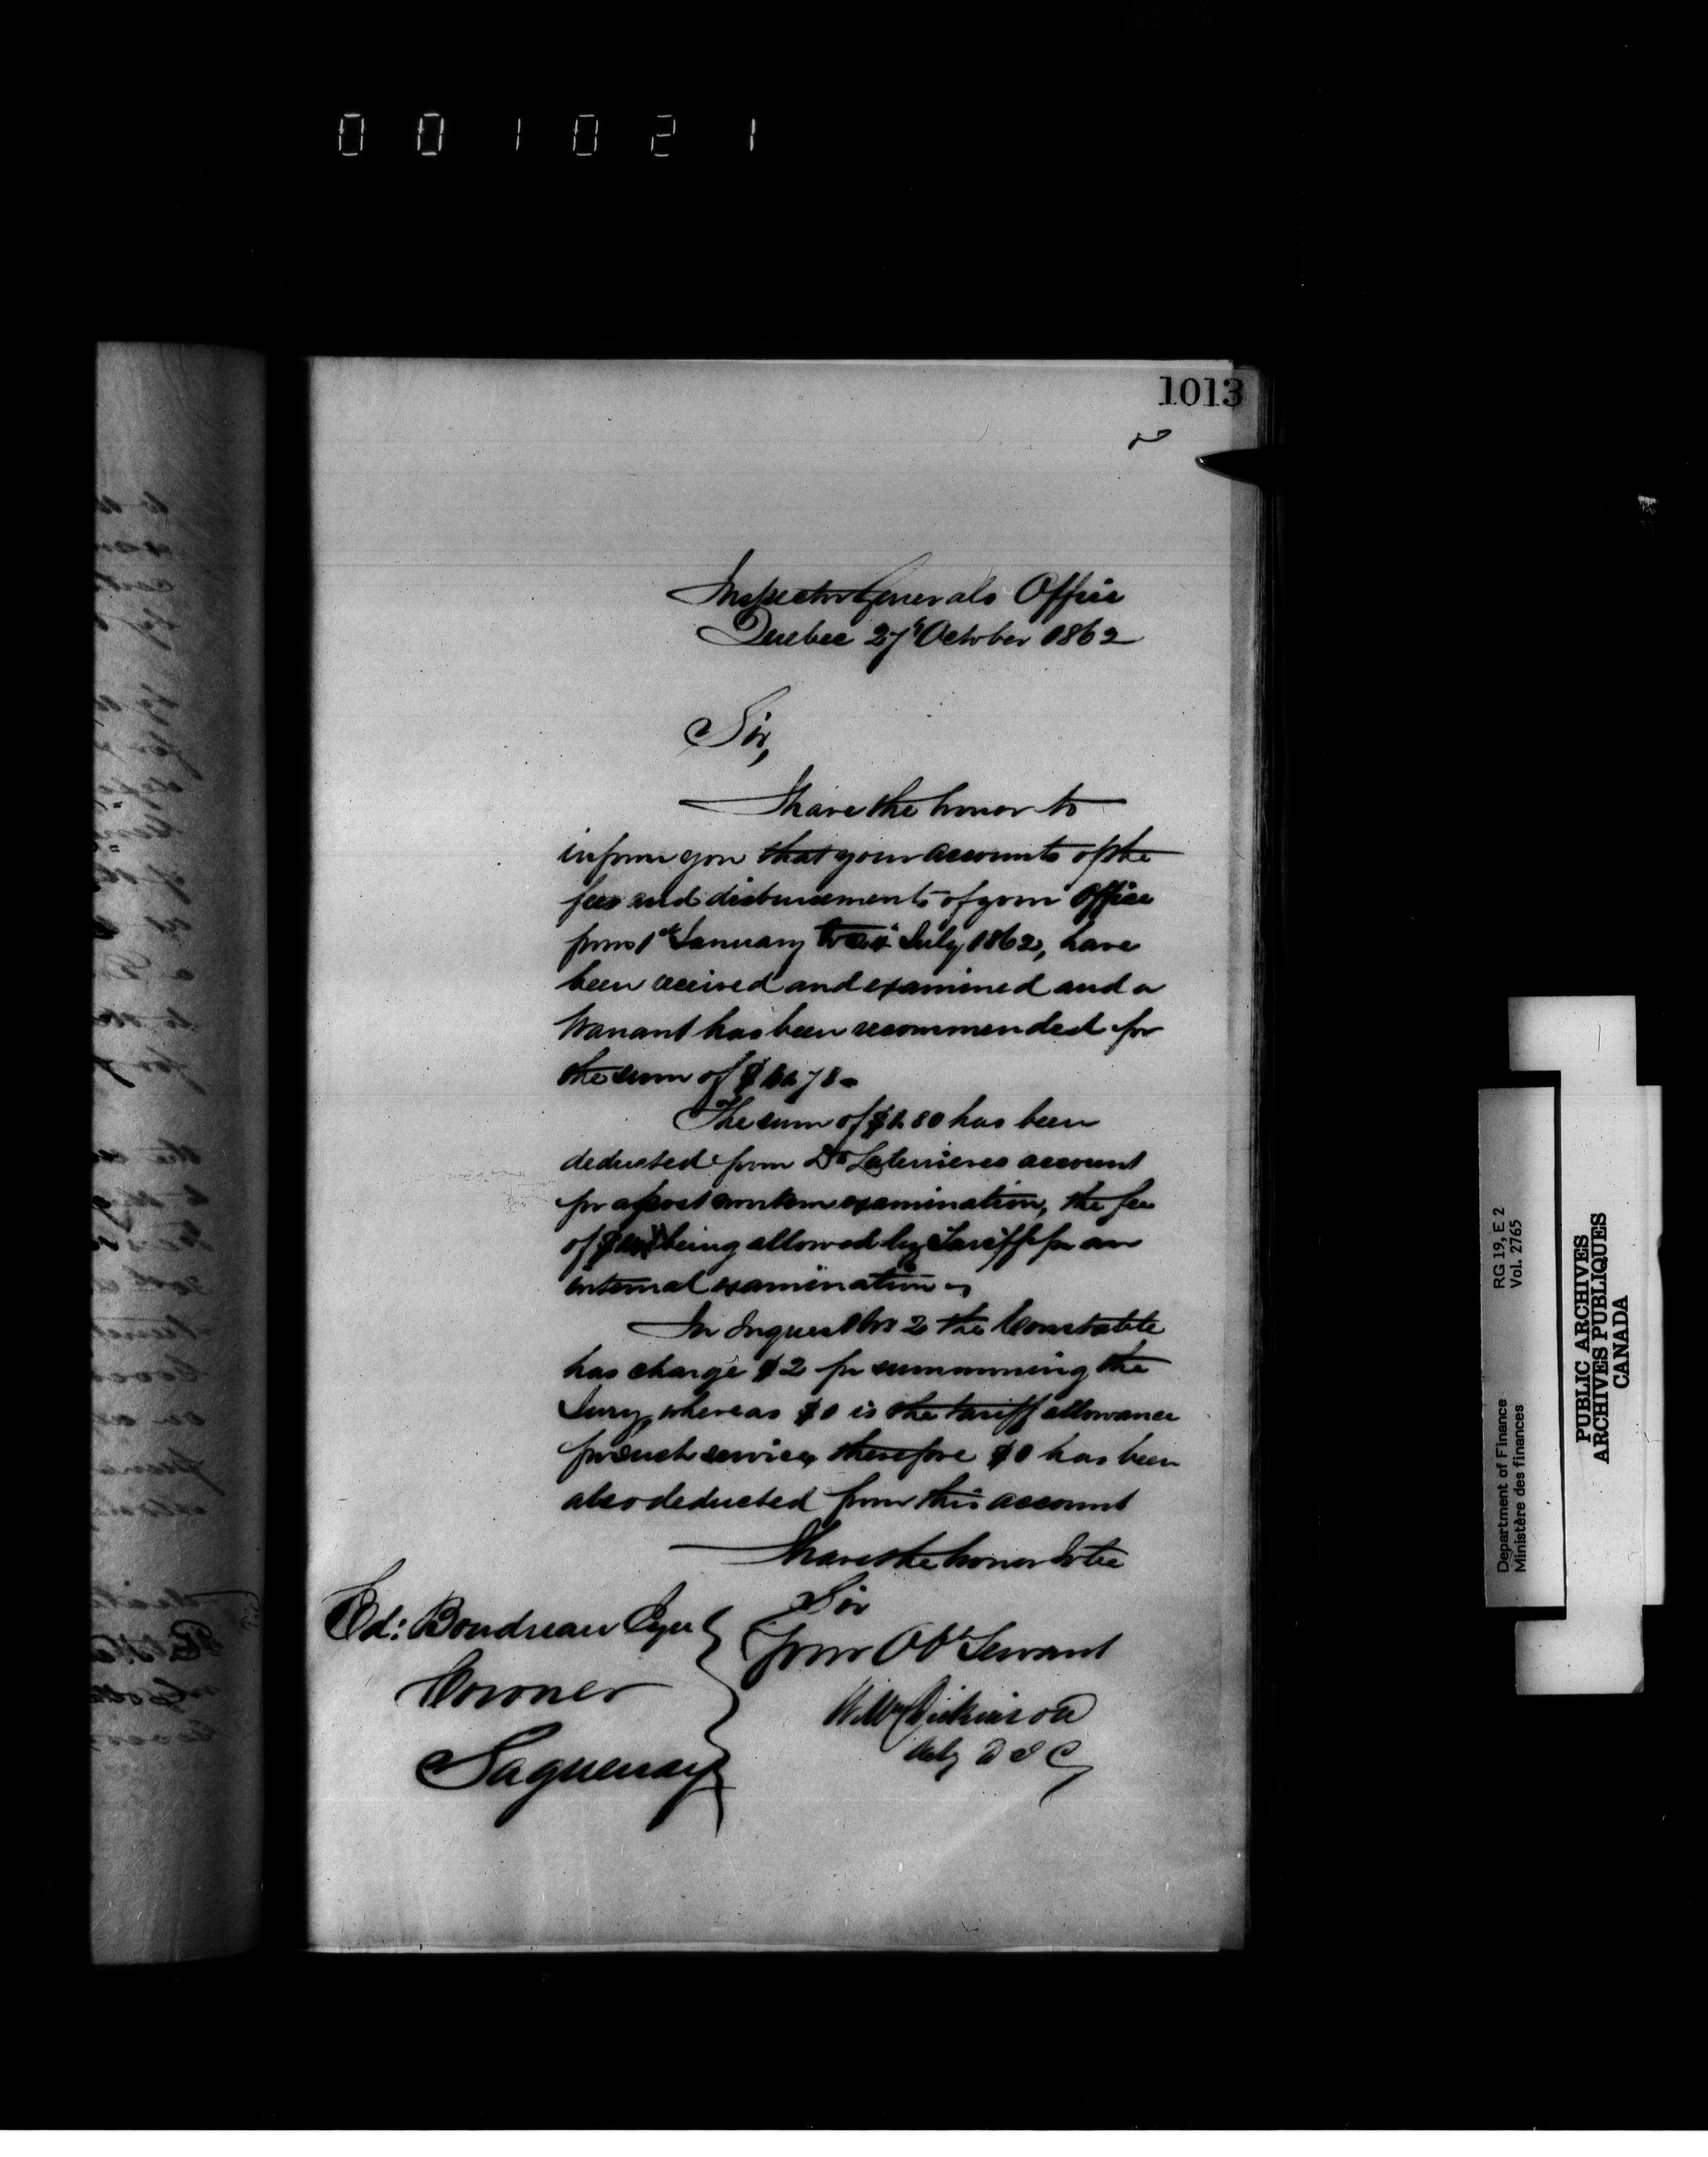 001021
1013
Inspector Generals Office
Quebec 27th October 1862
Sir,
I have the honor to
inform you that your accounts of the
fees and disbursements of your Office
from 1st January to July 1862, have
been received and examined and a
Warrant has been recommended for
the sum of $ 78
The sum of $ 80 has been
deducted from Dr Laterrieres account
for a post mortem examination, the fee
of being allowed by Tariff for an
internal examination
In Inquest No 2 the Constable
has charge $2 for summoning the
Jury, whereas $1 is the tariff allowance
for such service, therefore $1 has been
also deducted from this account
I have the honor to be
Sir
Your Obt Servant
Wm Dickinson
Actg D I G
Ed: Boudreau Esqr
Coroner
Saguenay
Department of Finance RG 19, E 2
Ministère des finances Vol. 2765
PUBLIC ARCHIVES
ARCHIVES PUBLIQUES
CANADA